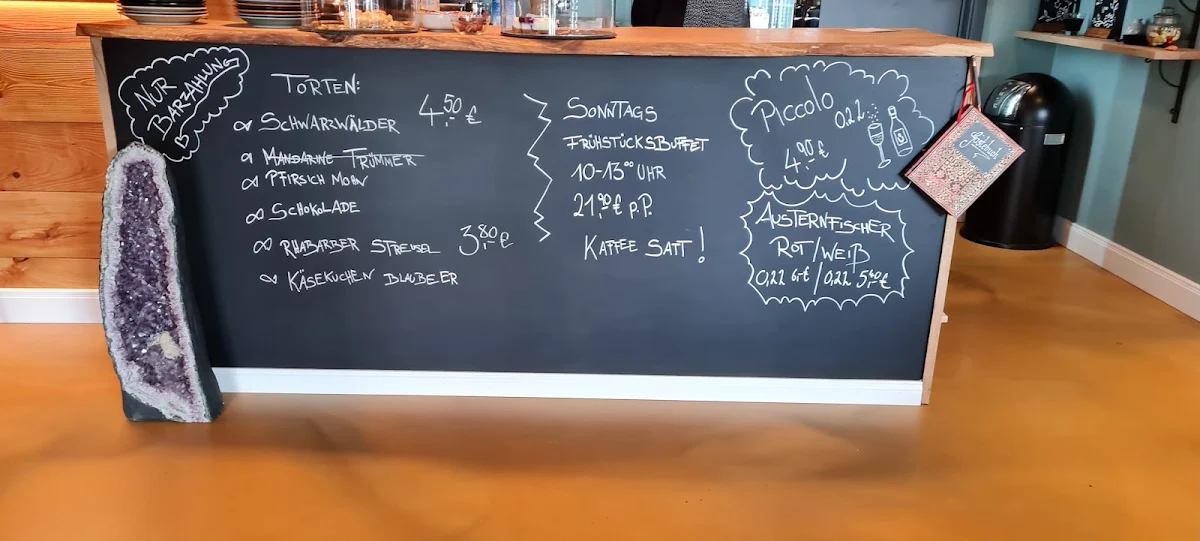 NUR
BARZAHLUNG
TORTEN:
SCHWARZWÄLDER 4,50 €
MANDARINE TRÜMMER
PFIRSICH MOHN
SCHOKOLADE
RHABARBER STREUSEL 3,80 €
KÄSEKUCHEN BLAUBEER
SONNTAGS
FRÜHSTÜCKSBUFFET
10-13⁰⁰ UHR
21,90 € p.P.
KAFFEE SATT!
PICCOLO 0,2l
4,00 €
AUSTERNFISCHER
ROT/WEIß
0,2l 6,-€ / 0,2l 5,40 €